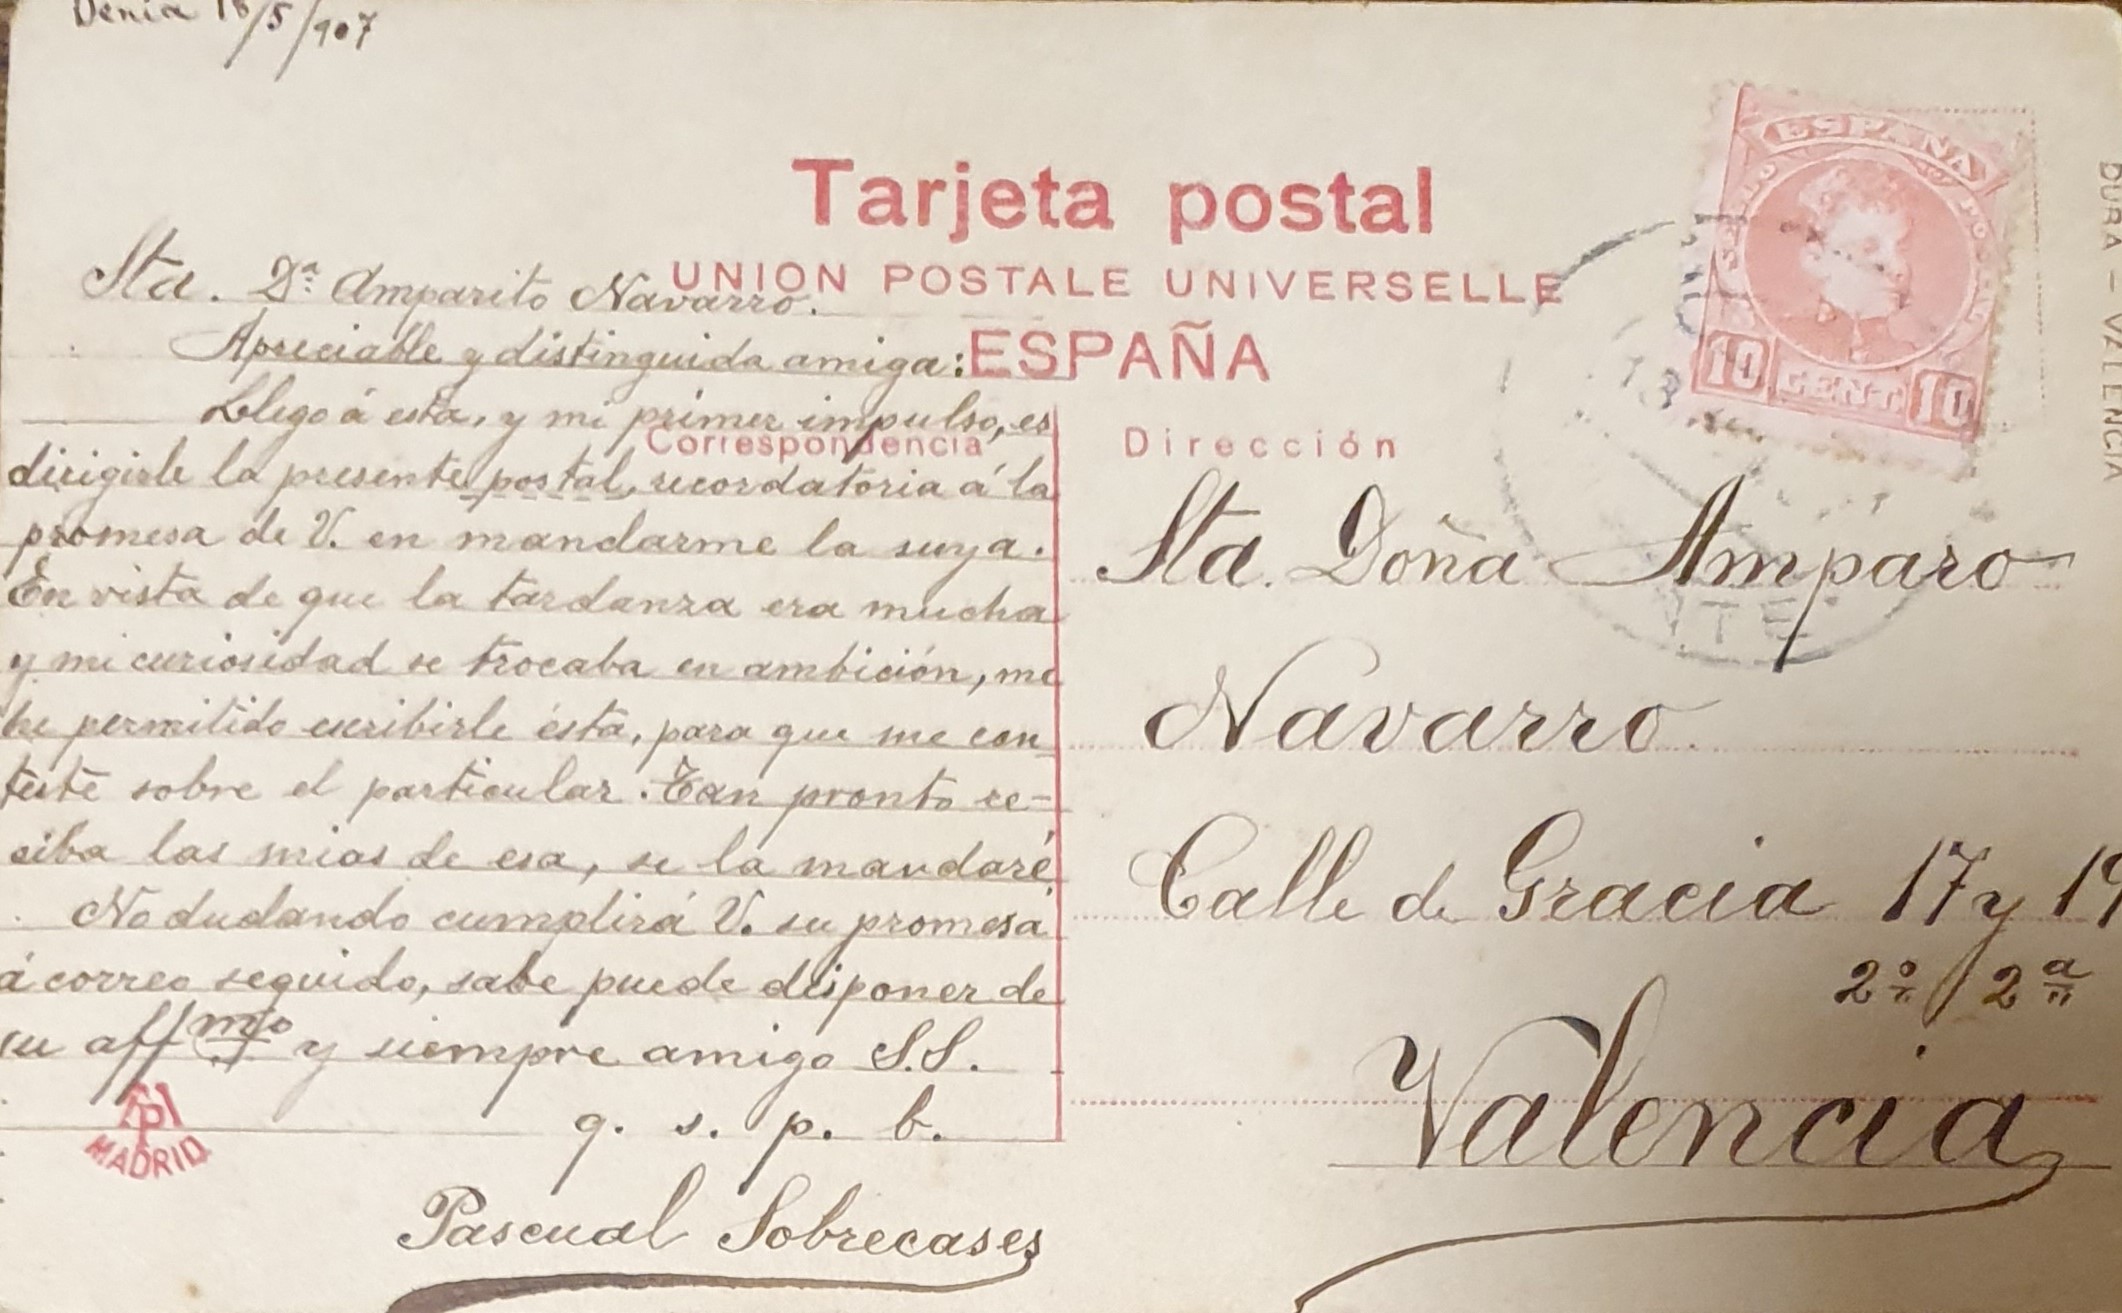 Denia 18/5/907
Tarjeta postal
UNION POSTALE UNIVERSELLE
ESPAÑA
Correspondencia
Dirección
Sta. Dª Amparito Navarro.
Apreciable y distinguida amiga:
Llego á esta, y mi primer impulso, es
dirigirle la presente postal, recordatoria á la
promesa de V. en mandarme la suya.
En vista de que la tardanza era mucha
y mi curiosidad se trocaba en ambición, me
he permitido escribirle ésta, para que me con
teste sobre el particular. Tan pronto re-
ciba las mias de esa, se la mandaré.
No dudando cumplirá V. su promesa
á correo seguido, sabe puede disponer de
su affmo y siempre amigo S.S.
q. s. p. b.
Pascual Sobrecases
MADRID
Sta. Doña Amparo
Navarro
Calle de Gracia 17 y 19
2º / 2ª
Valencia
ESPAÑA
SELLO POSTAL
10 CENT. 10
DURÁ - VALENCIA